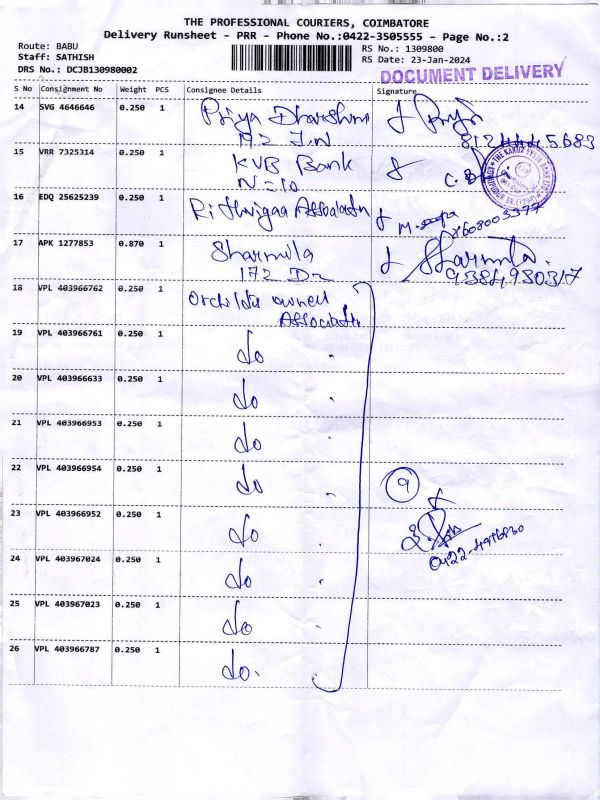 THE PROFESSIONAL COURIERS, COIMBATORE
Delivery Runsheet - PRR - Phone No.:0422-3505555 - Page No.:2
Route: BABU
RS No.: 1309800
Staff: SATHISH
RS Date: 23-Jan-2024
DRS No.: DCJB130980002
DOCUMENT DELIVERY
S No Consignment No Weight PCS Consignee Details Signature
14 SVG 4646646 0.250 1 Priya Dharshini
172 J.N
15 VRR 7325314 0.250 1 KVB Bank
N=10
16 EDQ 25625239 0.250 1 Rithvigaa Association
17 APK 1277853 0.870 1 Sharmila
172 Dr 9384930317
18 VPL 403966762 0.250 1 owned
Association
19 VPL 403966761 0.250 1 do "
20 VPL 403966633 0.250 1 do
21 VPL 403966953 0.250 1 do
22 VPL 403966954 0.250 1 do 9
23 VPL 403966952 0.250 1 do
24 VPL 403967024 0.250 1 do
25 VPL 403967023 0.250 1 do
26 VPL 403966787 0.250 1 do.